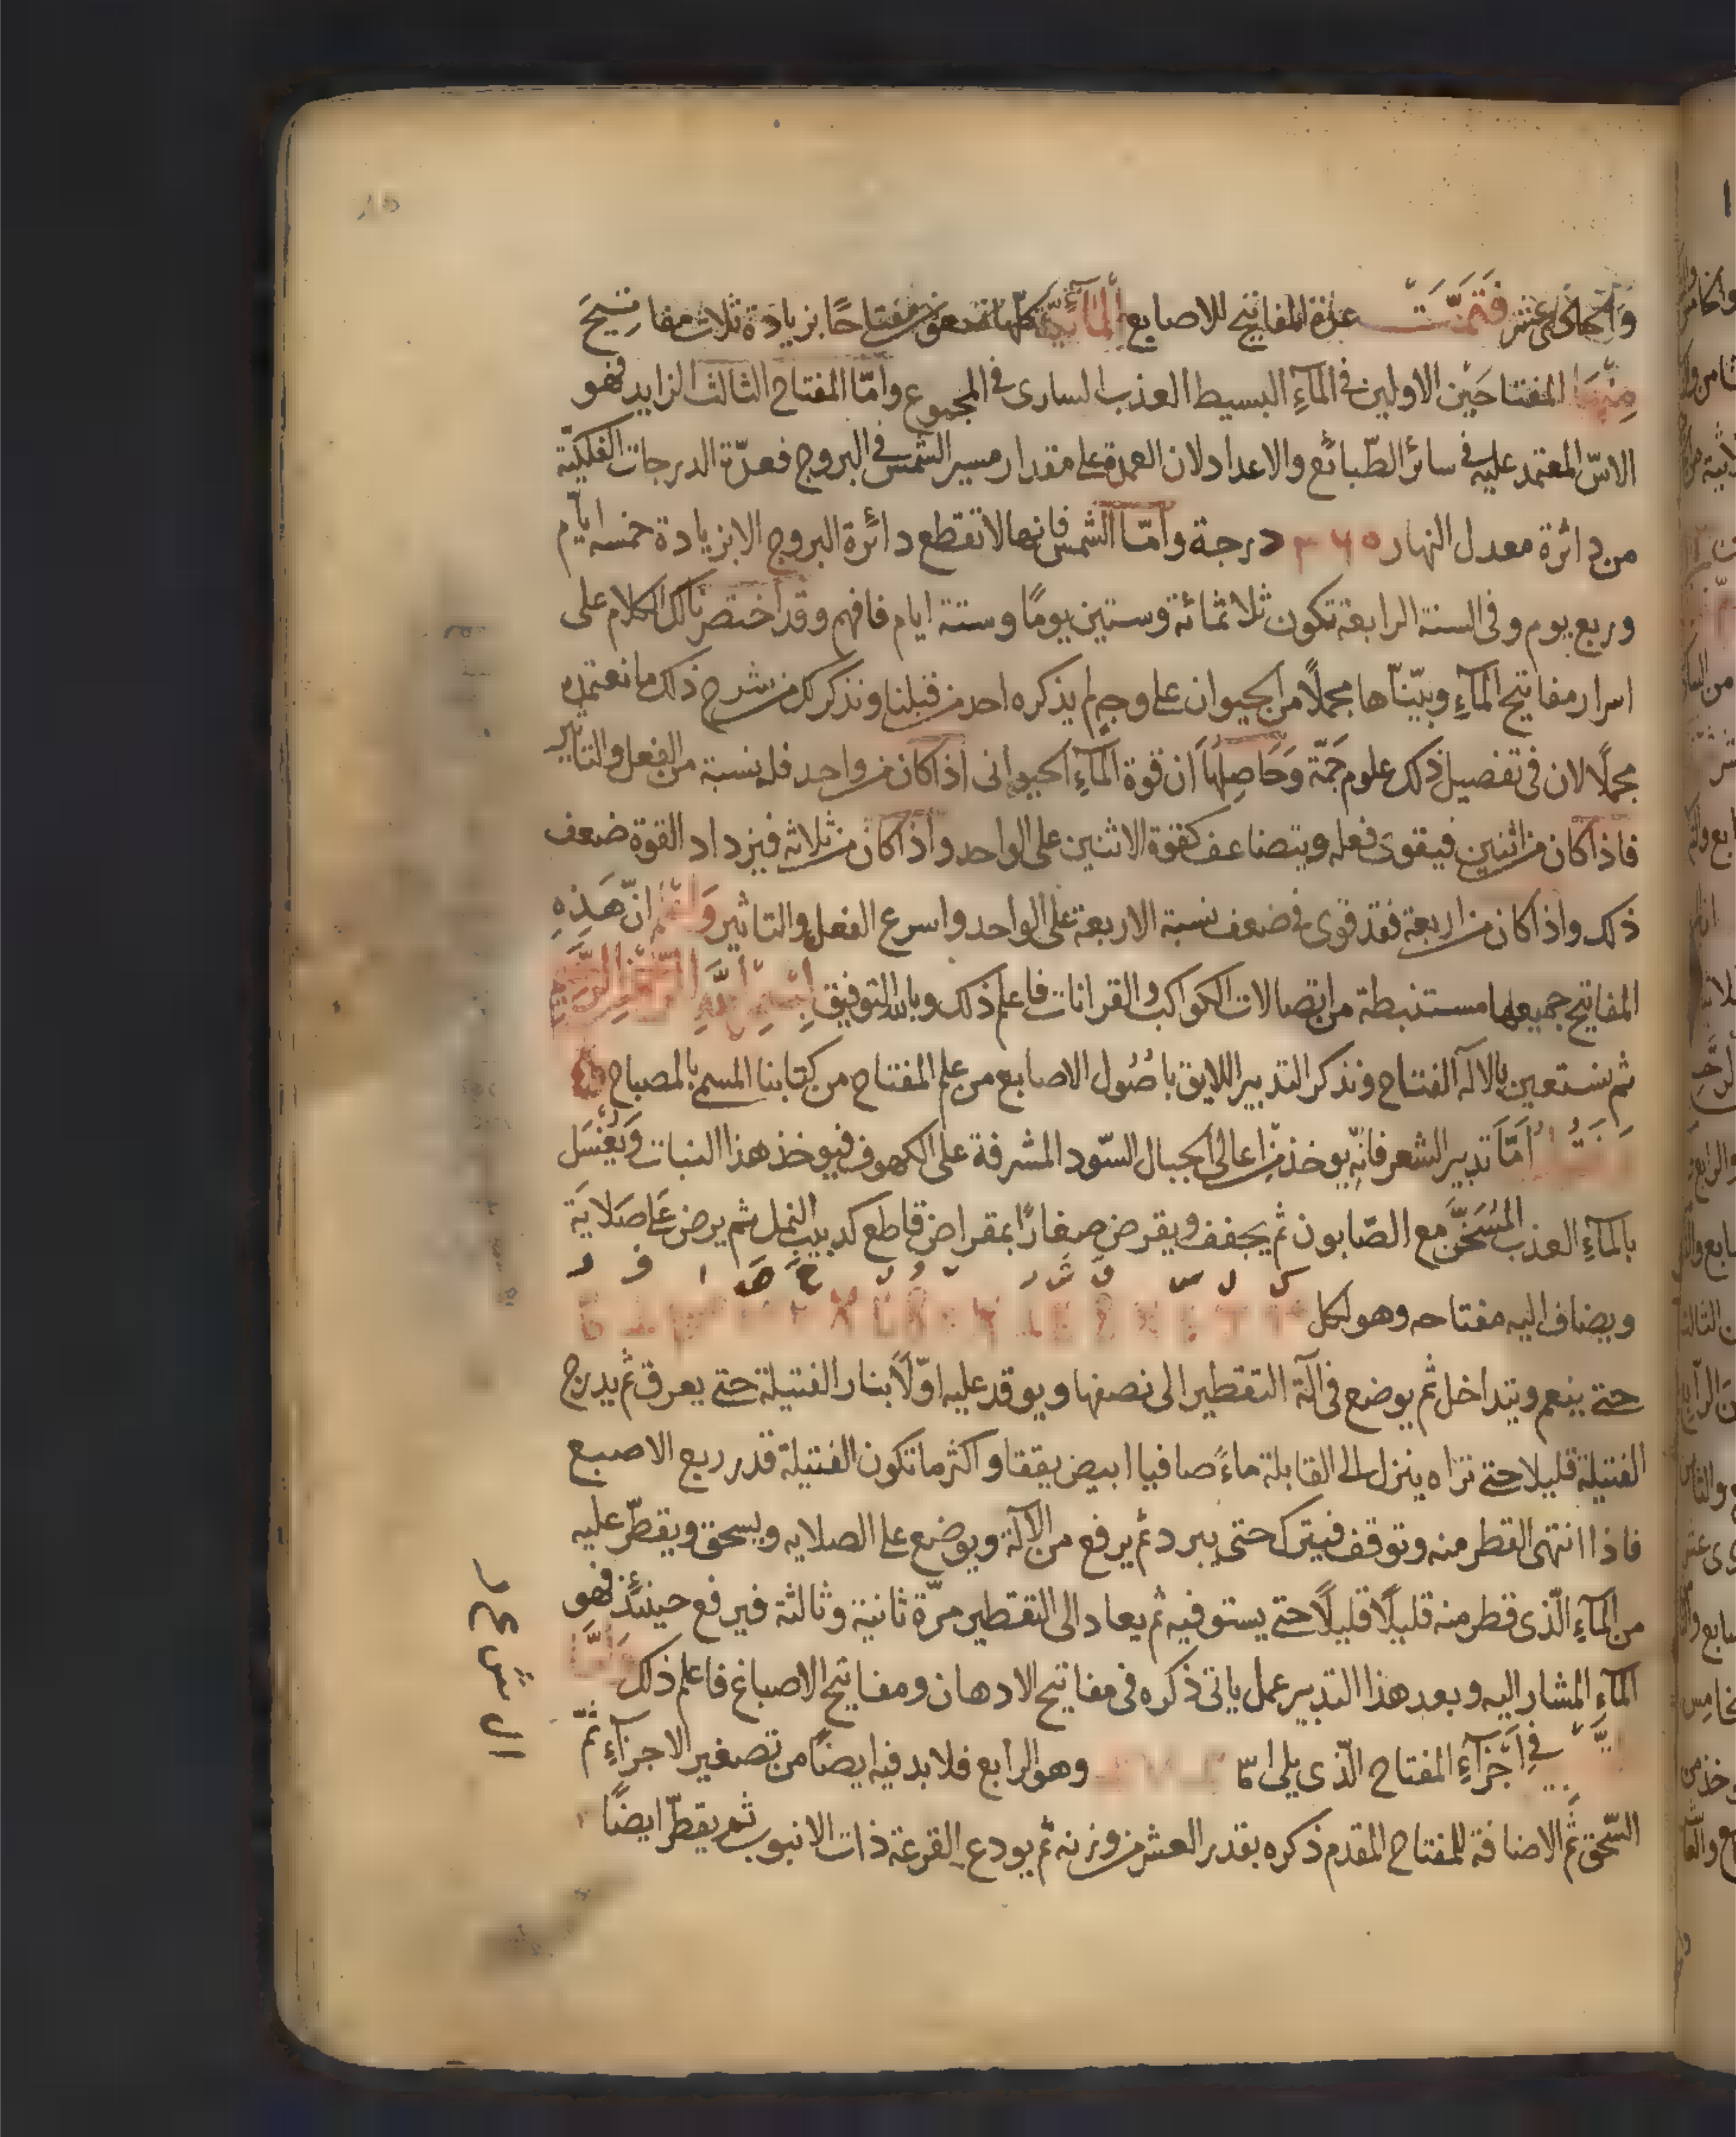 والحادى عشر فتمت عدة المفاتيح للاصابع المائية كلها مفتاحًا بزيادة ثلاث مفاتيح
منها المفتاحين الاولين فى المآءِ البسيط العذب السارى فى المجموع وامّا المفتاح الثالث الزايد فهو
الاسّ المعتمد عليه فى سائر الطّبائع والاعداد لان العمدة على مقدار مسير الشمس فى البروج فعدّة الدرجات الفلكيّة
من دائرة معدل النهار ٣٦٥ درجة وامّا الشمس فانها لا تقطع دائرة البروج الا بزيادة خمسه ايآم
وربع يوم وفى السنة الرابعة تكون ثلاثمائة وستين يومًا وستة ايام فافهم وقد اختصرنا لك الكلام على
اسرار مفاتيح المآءِ وبيّنّاها مجملًا من الحيوان على وجهٍ لم يذكره احد من قبلنا ونذكر لك من شرح ذلك ما نعتمده
مجملًا لان فى تفصيل ذلك علوم جَمّة وَحَاصِلها ان قوة المآءِ الحيوانى اذا كان من واحد فله نسبة من الفعل والتاثير
فاذا كان من اثنين فيقوى فعله ويتضاعف كقوة الاثنين على الواحد واذا كان من ثلاثه فيزداد القوة ضعف
ذلك واذا كان من اربعة فقد قوى فى ضعف نسبة الاربعة على الواحد واسرع الفعل والتاثير واعلم انّ هَذِهِ
المفاتيح جميعها مستنبطة من اتصالات الكواكب والقرانات فاعلم ذلك وبالله التوفيق بِسْمِ اللَّهِ الرَّحْمٰنِ الرَّحِيمِ
ثم نستعين بالاله الفتاح ونذكر التدبير اللايق باصُول الاصابع من علم المفتاح من كتابنا المسمى بالمصباح
اَمّا تدبير الشعر فانّه يوخذ من اعالى الجبال السّود المشرفة على الكهوف فيوخذ هذا النبات وَيُغسَل
بالمآءِ العذب المُسَخَّن مع الصّابون ثم يجفف ويقرض صغارًا بمقراض قاطع كدبيب النمل ثم يرض على صلايَة
ويضاف اليه مفتاحه وهو لكل
حتى ينعم ويتداخل ثم يوضع فى آلة التقطير الى نصفها ويوقد عليه اوّلًا بنار الفتيلة حتى يعرق ثم يدرج
الفتيلة قليلا حتى تراه ينزل الى القابلة ماءً صافيا ابيض يققا واكثر ما تكون الفتيلة قدر ربع الاصبع
فاذا انتهى القطر منه وتوقف فيترك حتى يبرد ثم يرفع من الآلة ويوضع على الصلايه ويسحق ويقطّر عليه
من المآءِ الّذى قطر منه قليلًا قليلًا حتى يستوفيه ثم يعاد الى التقطير مرّة ثانية وثالثة فيرفع حينئذٍ فهو
المآءِ المشار اليه وبعد هذا التدبير عمل ياتى ذكره فى مفاتيح الادهان ومفاتيح الاصباغ فاعلم ذلك وَامّا
فى اَجْزآءِ المفتاح الّذى يلى وهو الرابع فلا بد فيه ايضًا من تصغير الاجزآءِ ثمّ
السّحق ثمّ الاضافة للمفتاح المقدم ذكره بقدر العشر من وزنه ثم يودع القرعة ذات الانبوب ثم يقطّر ايضًا